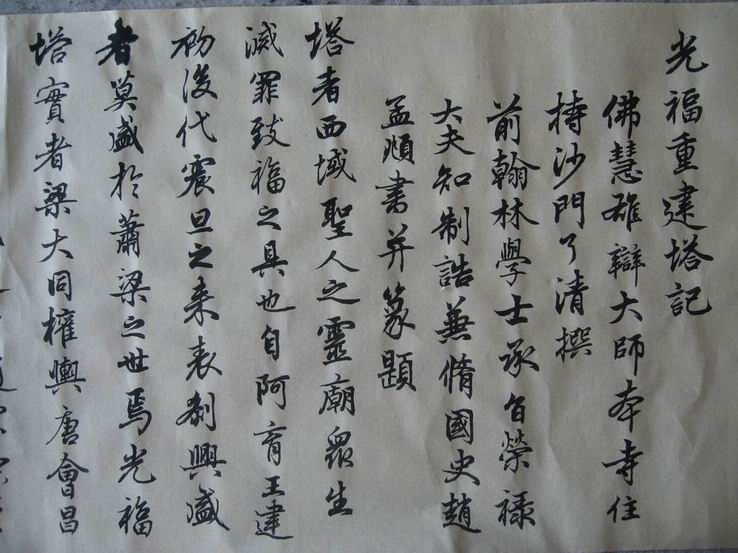 光福重建塔記
佛慧雄辯大師本寺住
持沙門了清撰
前翰林學士承旨榮祿
大夫知制誥兼脩國史趙
孟頫書并篆題
塔者西域聖人之靈廟眾生
滅罪致福之具也自阿育王建
初後代震旦之來表剎興盛
者莫盛於蕭梁之世焉光福
塔實者梁大同權輿唐會昌